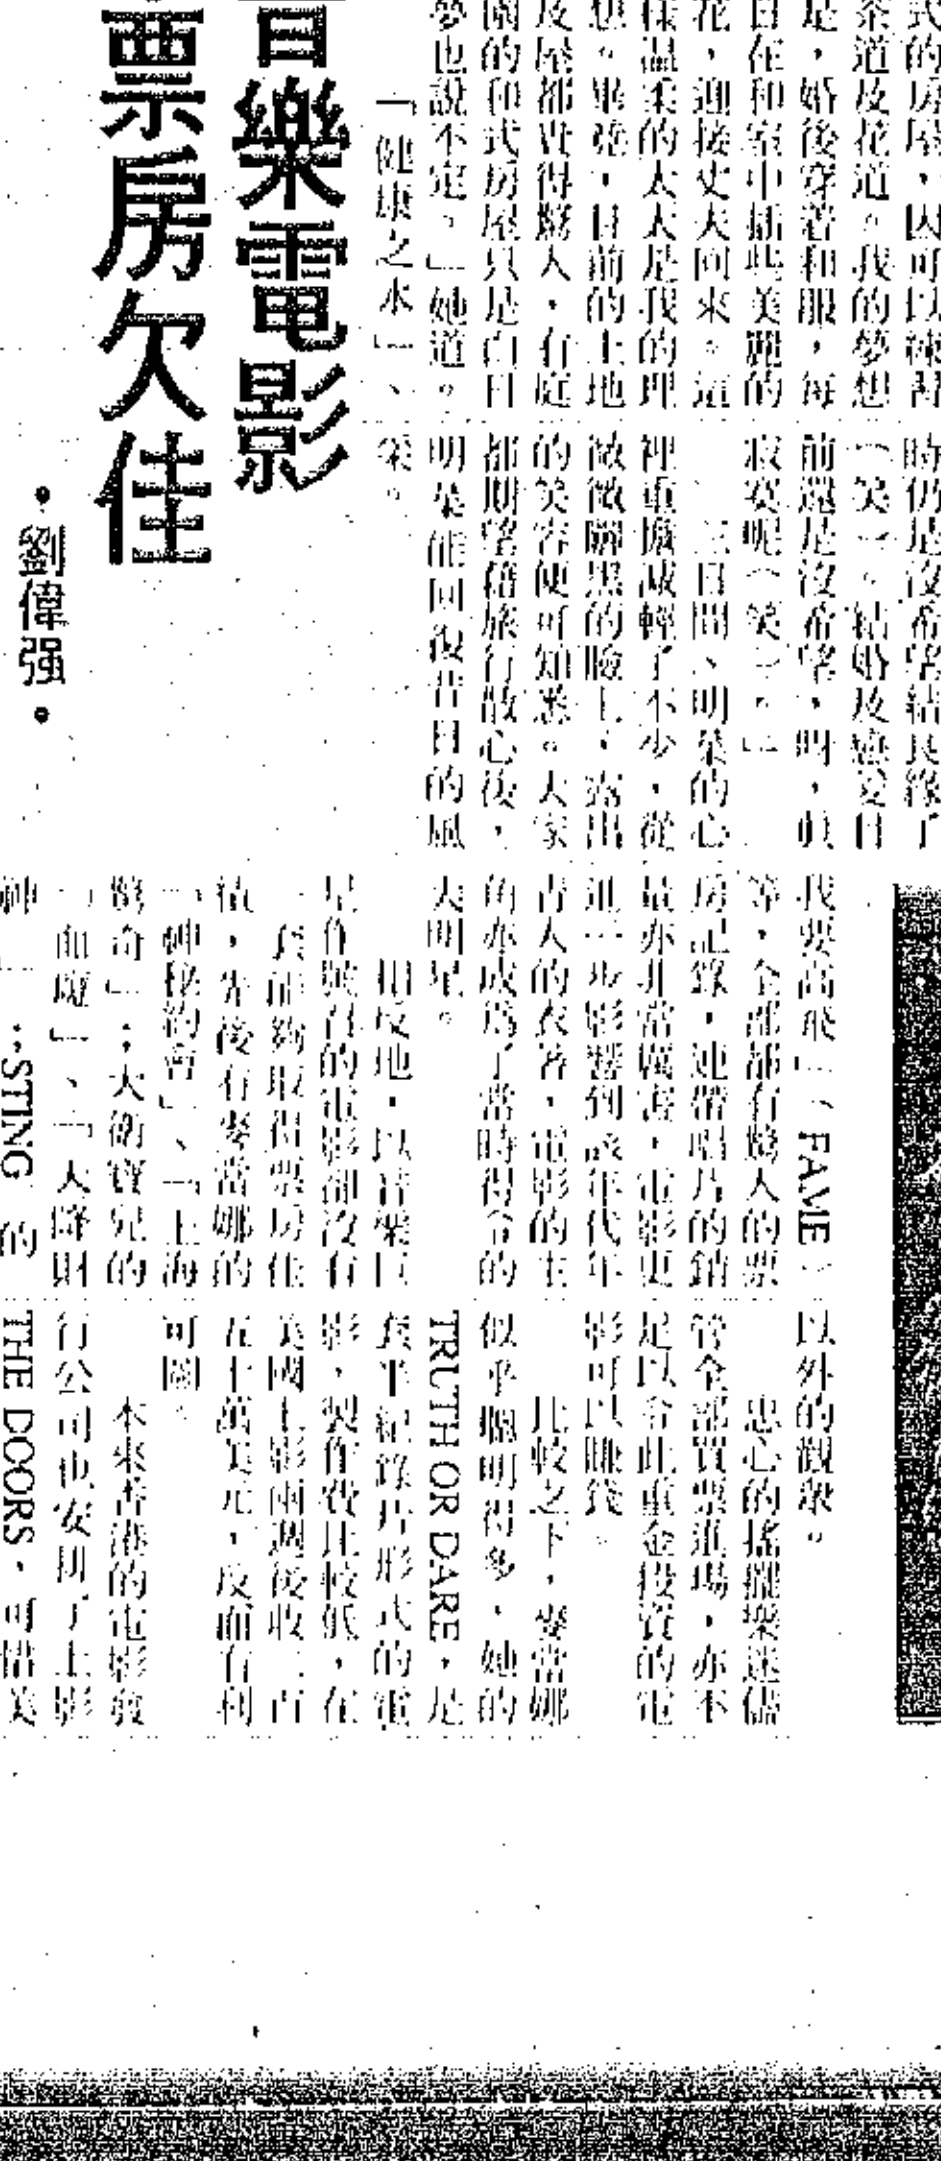 式的房屋，因可以練習
茶道及花道。我的夢想
是，婚後穿着和服，每
日在和室中插些美麗的
花，迎接丈夫回來。這
樣溫柔的太太是我的理
想。畢竟，目前的土地
及屋都貴得驚人，有庭
園的和式房屋只是白日
夢也說不定。」她道。
「健康之水」、
時仍是沒希望結良緣了
（笑）。結婚及戀愛目
前還是沒希望，啊，真
寂寞呢（笑）。」
三日間、明菜的心
裡重擔減輕了不少，從
微微曬黑的臉上，露出
的笑容便可知悉。大家
都期望藉旅行散心後，
明菜能回復昔日的風
采。
音樂電影
票房欠佳
•劉偉强•
我要高飛」（FAME）
等，全部都有驚人的票
房記錄，連帶唱片的銷
量亦非常厲害，電影更
進一步影響到該年代年
青人的衣著，電影的主
角亦成爲了當時得令的
大明星。
相反地，以音樂巨
星作號召的電影卻沒有
一套能夠取得票房佳
績，先後有麥當娜的
「神秘約會」、「上海
驚奇」；大衛寶兒的
「血魔」、「天降財
神」；STING 的
以外的觀衆。
忠心的搖擺樂迷儘
管全部買票進場，亦不
足以令此重金投資的電
影可以賺錢。
比較之下，麥當娜
似乎聰明得多，她的
TRUTH OR DARE，是
套半紀錄片形式的電
影，製作費比較低，在
美國上影兩週後收二百
五十萬美元，反而有利
可圖。
本來香港的電影發
行公司也安排了上影
THE DOORS，可惜美